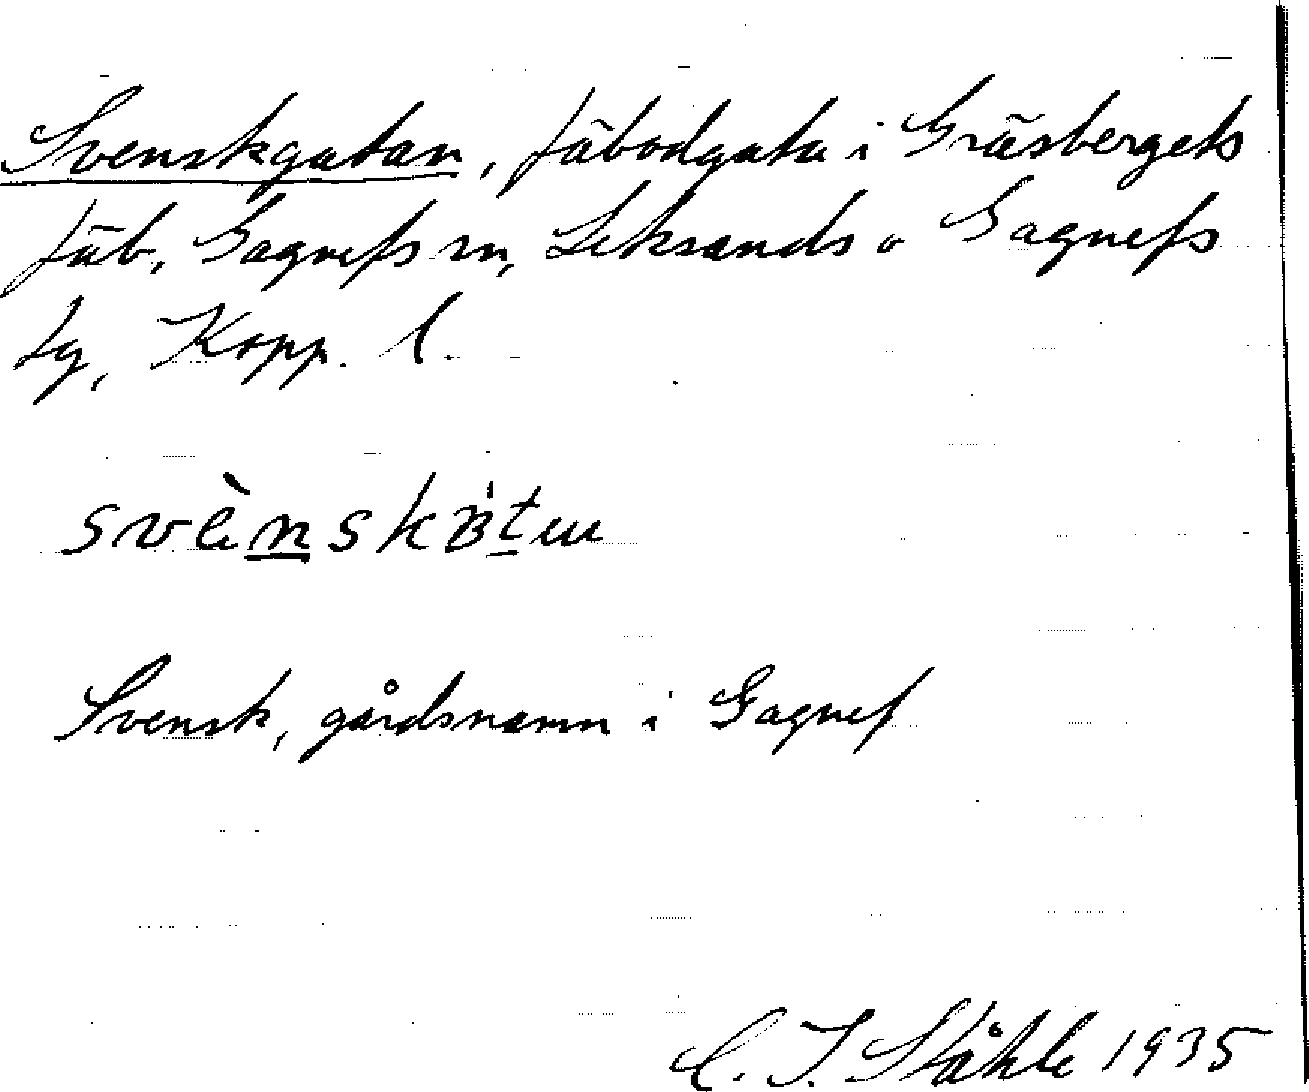 Svenskgatan, fäbodgata i Gräsbergets
fäb., Gagnefs sn, Leksands o Gagnefs
tg, Kopp. l.
Svensk, gårdsnamn i Gagnef
C. I. Ståhle 1935